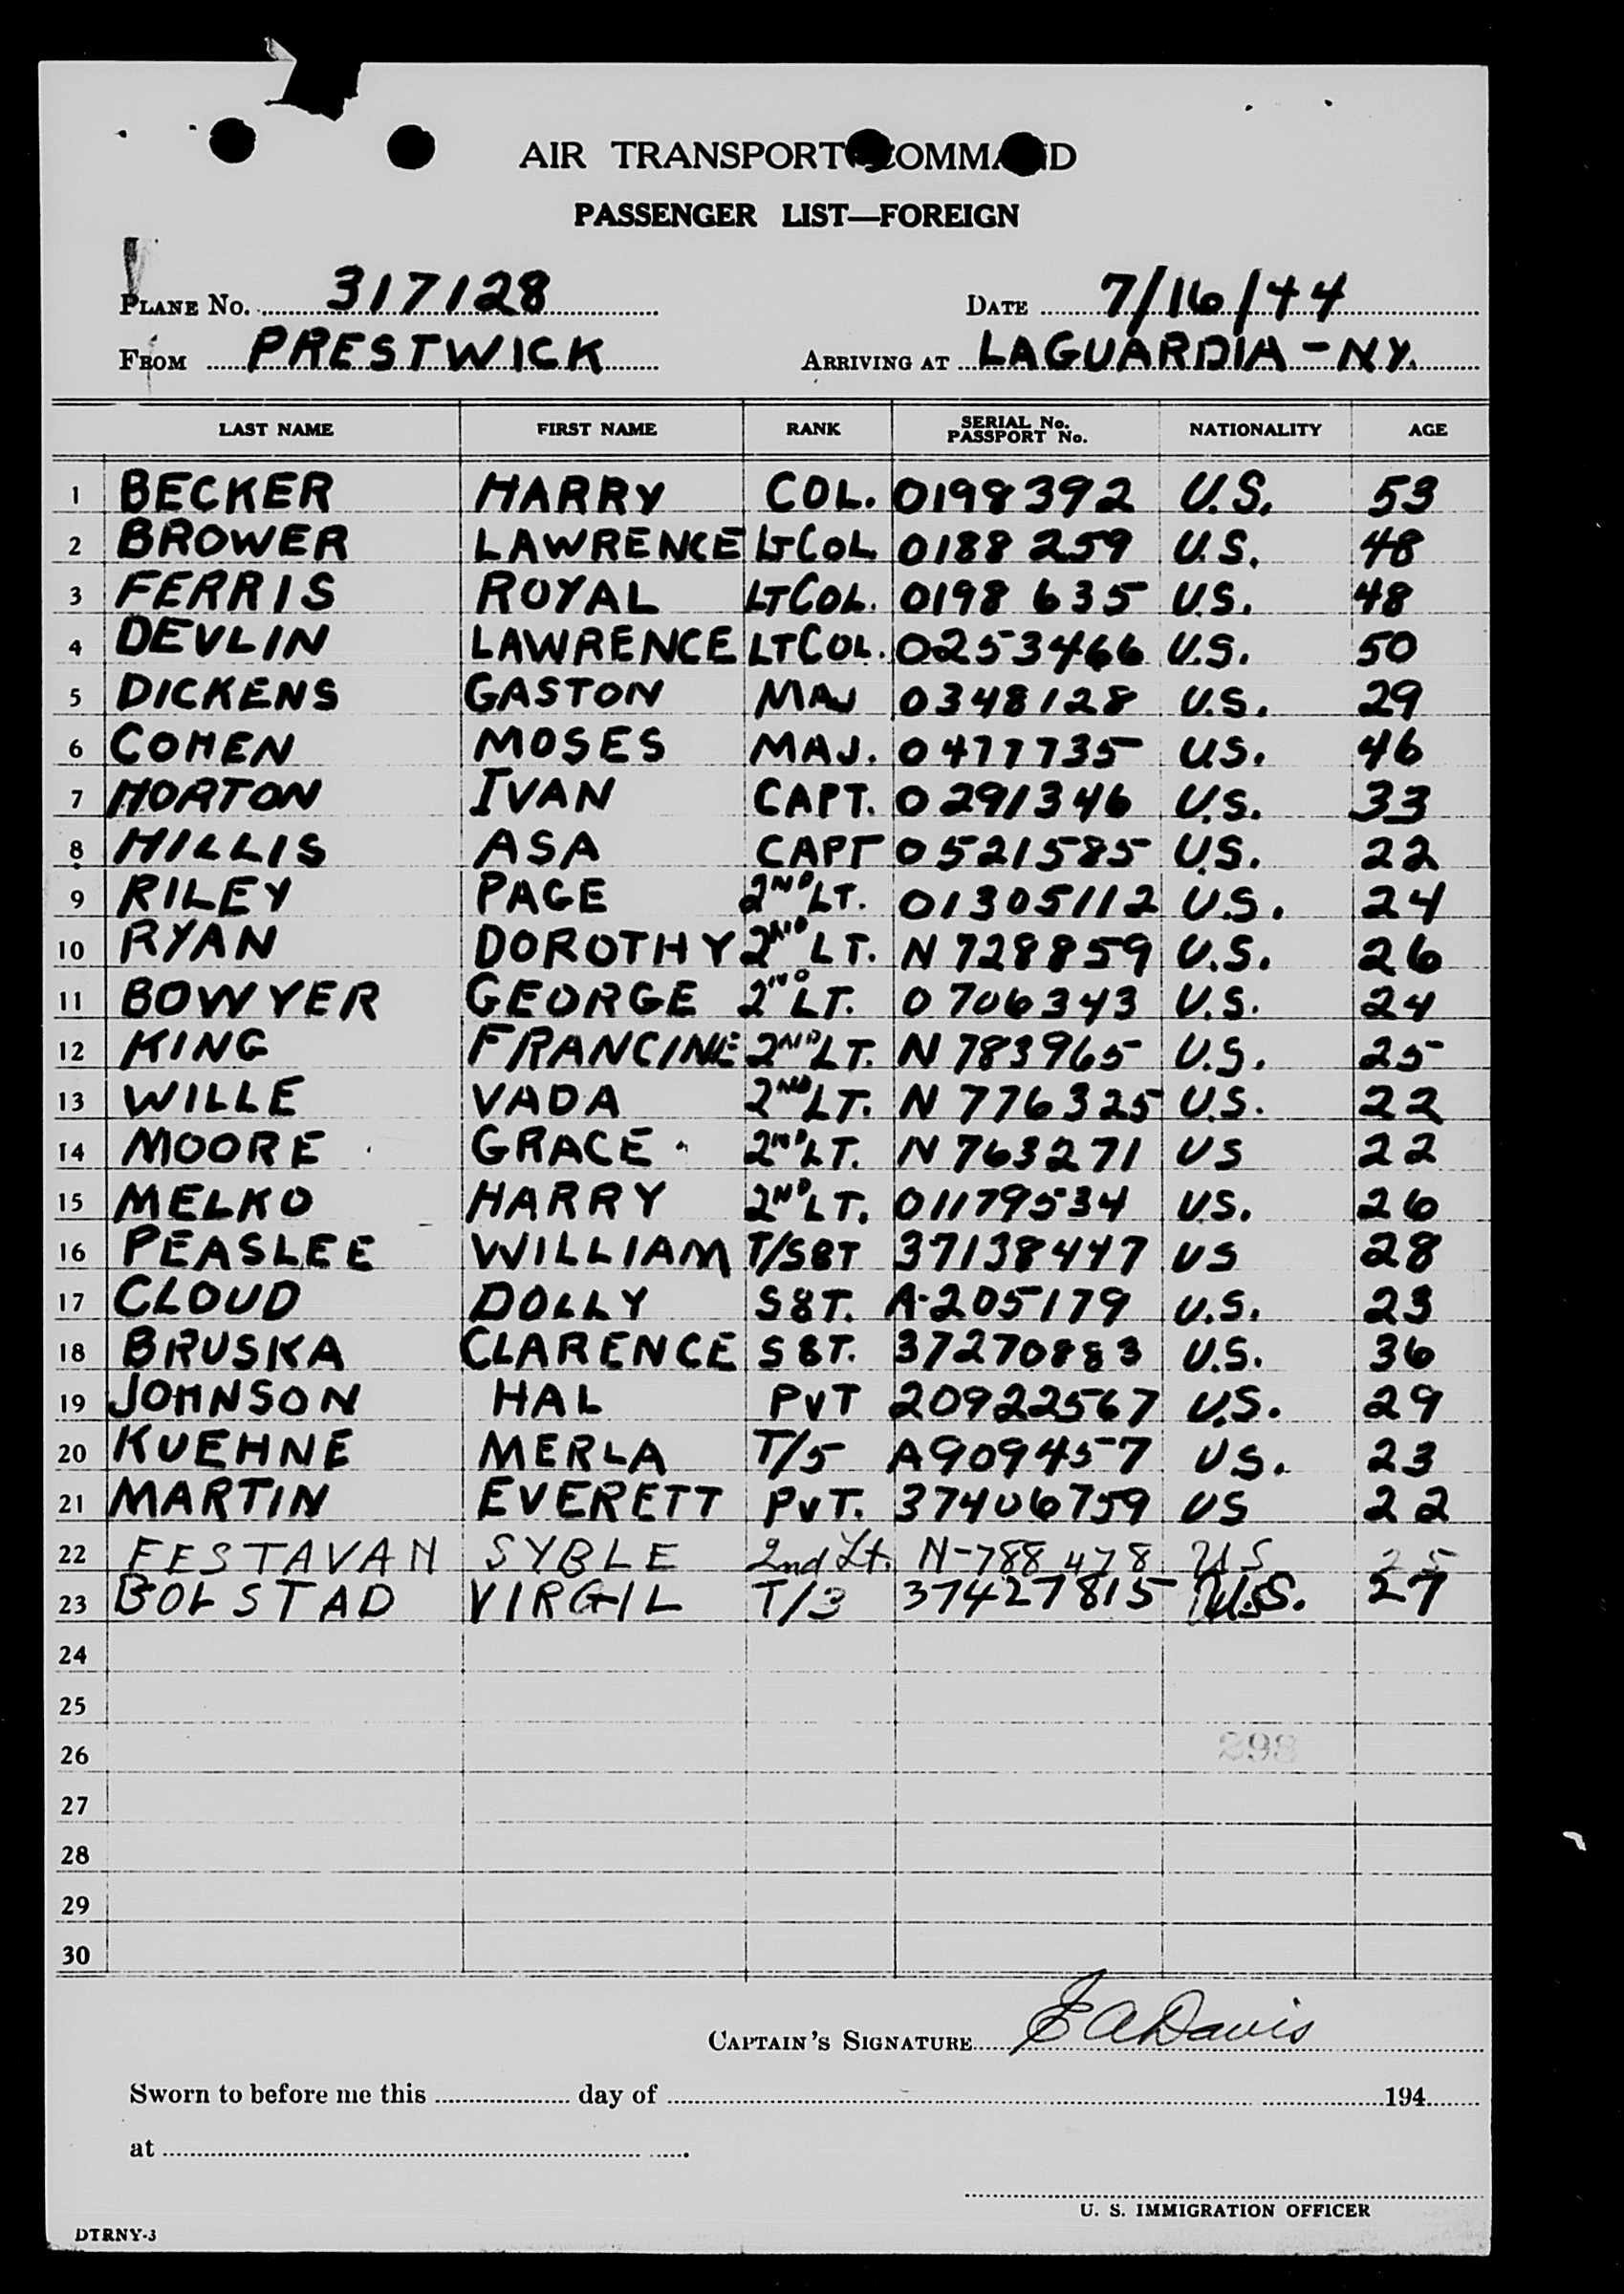 AIR TRANSPORT COMMAND
PASSENGER LIST—FOREIGN
PLANE No. 317128 DATE 7/16/44
FROM PRESTWICK ARRIVING AT LAGUARDIA-N.Y.
LAST NAME FIRST NAME RANK SERIAL No. PASSPORT No. NATIONALITY AGE
1 BECKER HARRY COL. 0198392 U.S. 53
2 BROWER LAWRENCE LT COL 0188259 U.S. 48
3 FERRIS ROYAL LT COL. 0198635 U.S. 48
4 DEVLIN LAWRENCE LT COL. 0253466 U.S. 50
5 DICKENS GASTON MAJ 0348128 U.S. 29
6 COHEN MOSES MAJ. 0477735 U.S. 46
7 HORTON IVAN CAPT. 0291346 U.S. 33
8 HILLIS ASA CAPT 0521585 U.S. 22
9 RILEY PAGE 2ND LT. 01305112 U.S. 24
10 RYAN DOROTHY 2ND LT. N 728859 U.S. 26
11 BOWYER GEORGE 2ND LT. 0706343 U.S. 24
12 KING FRANCINE 2ND LT. N 783965 U.S. 25
13 WILLE VADA 2ND LT. N 776325 U.S. 22
14 MOORE GRACE 2ND LT. N 763271 US 22
15 MELKO HARRY 2ND LT. 01179534 U.S. 26
16 PEASLEE WILLIAM T/SGT 37138447 US 28
17 CLOUD DOLLY SGT. A-205179 U.S. 23
18 BRUSKA CLARENCE SGT. 37270883 U.S. 36
19 JOHNSON HAL PVT 20922567 U.S. 29
20 KUEHNE MERLA T/5 A909457 US. 23
21 MARTIN EVERETT PVT. 37406759 US 22
22 FESTAVAN SYBLE 2nd Lt. N-788478 US 25
23 BOLSTAD VIRGIL T/3 37427815 U.S. 27
24
25
26 398
27
28
29
30
CAPTAIN'S SIGNATURE E A Davis
Sworn to before me this day of 194
at
U. S. IMMIGRATION OFFICER
DTRNY-3